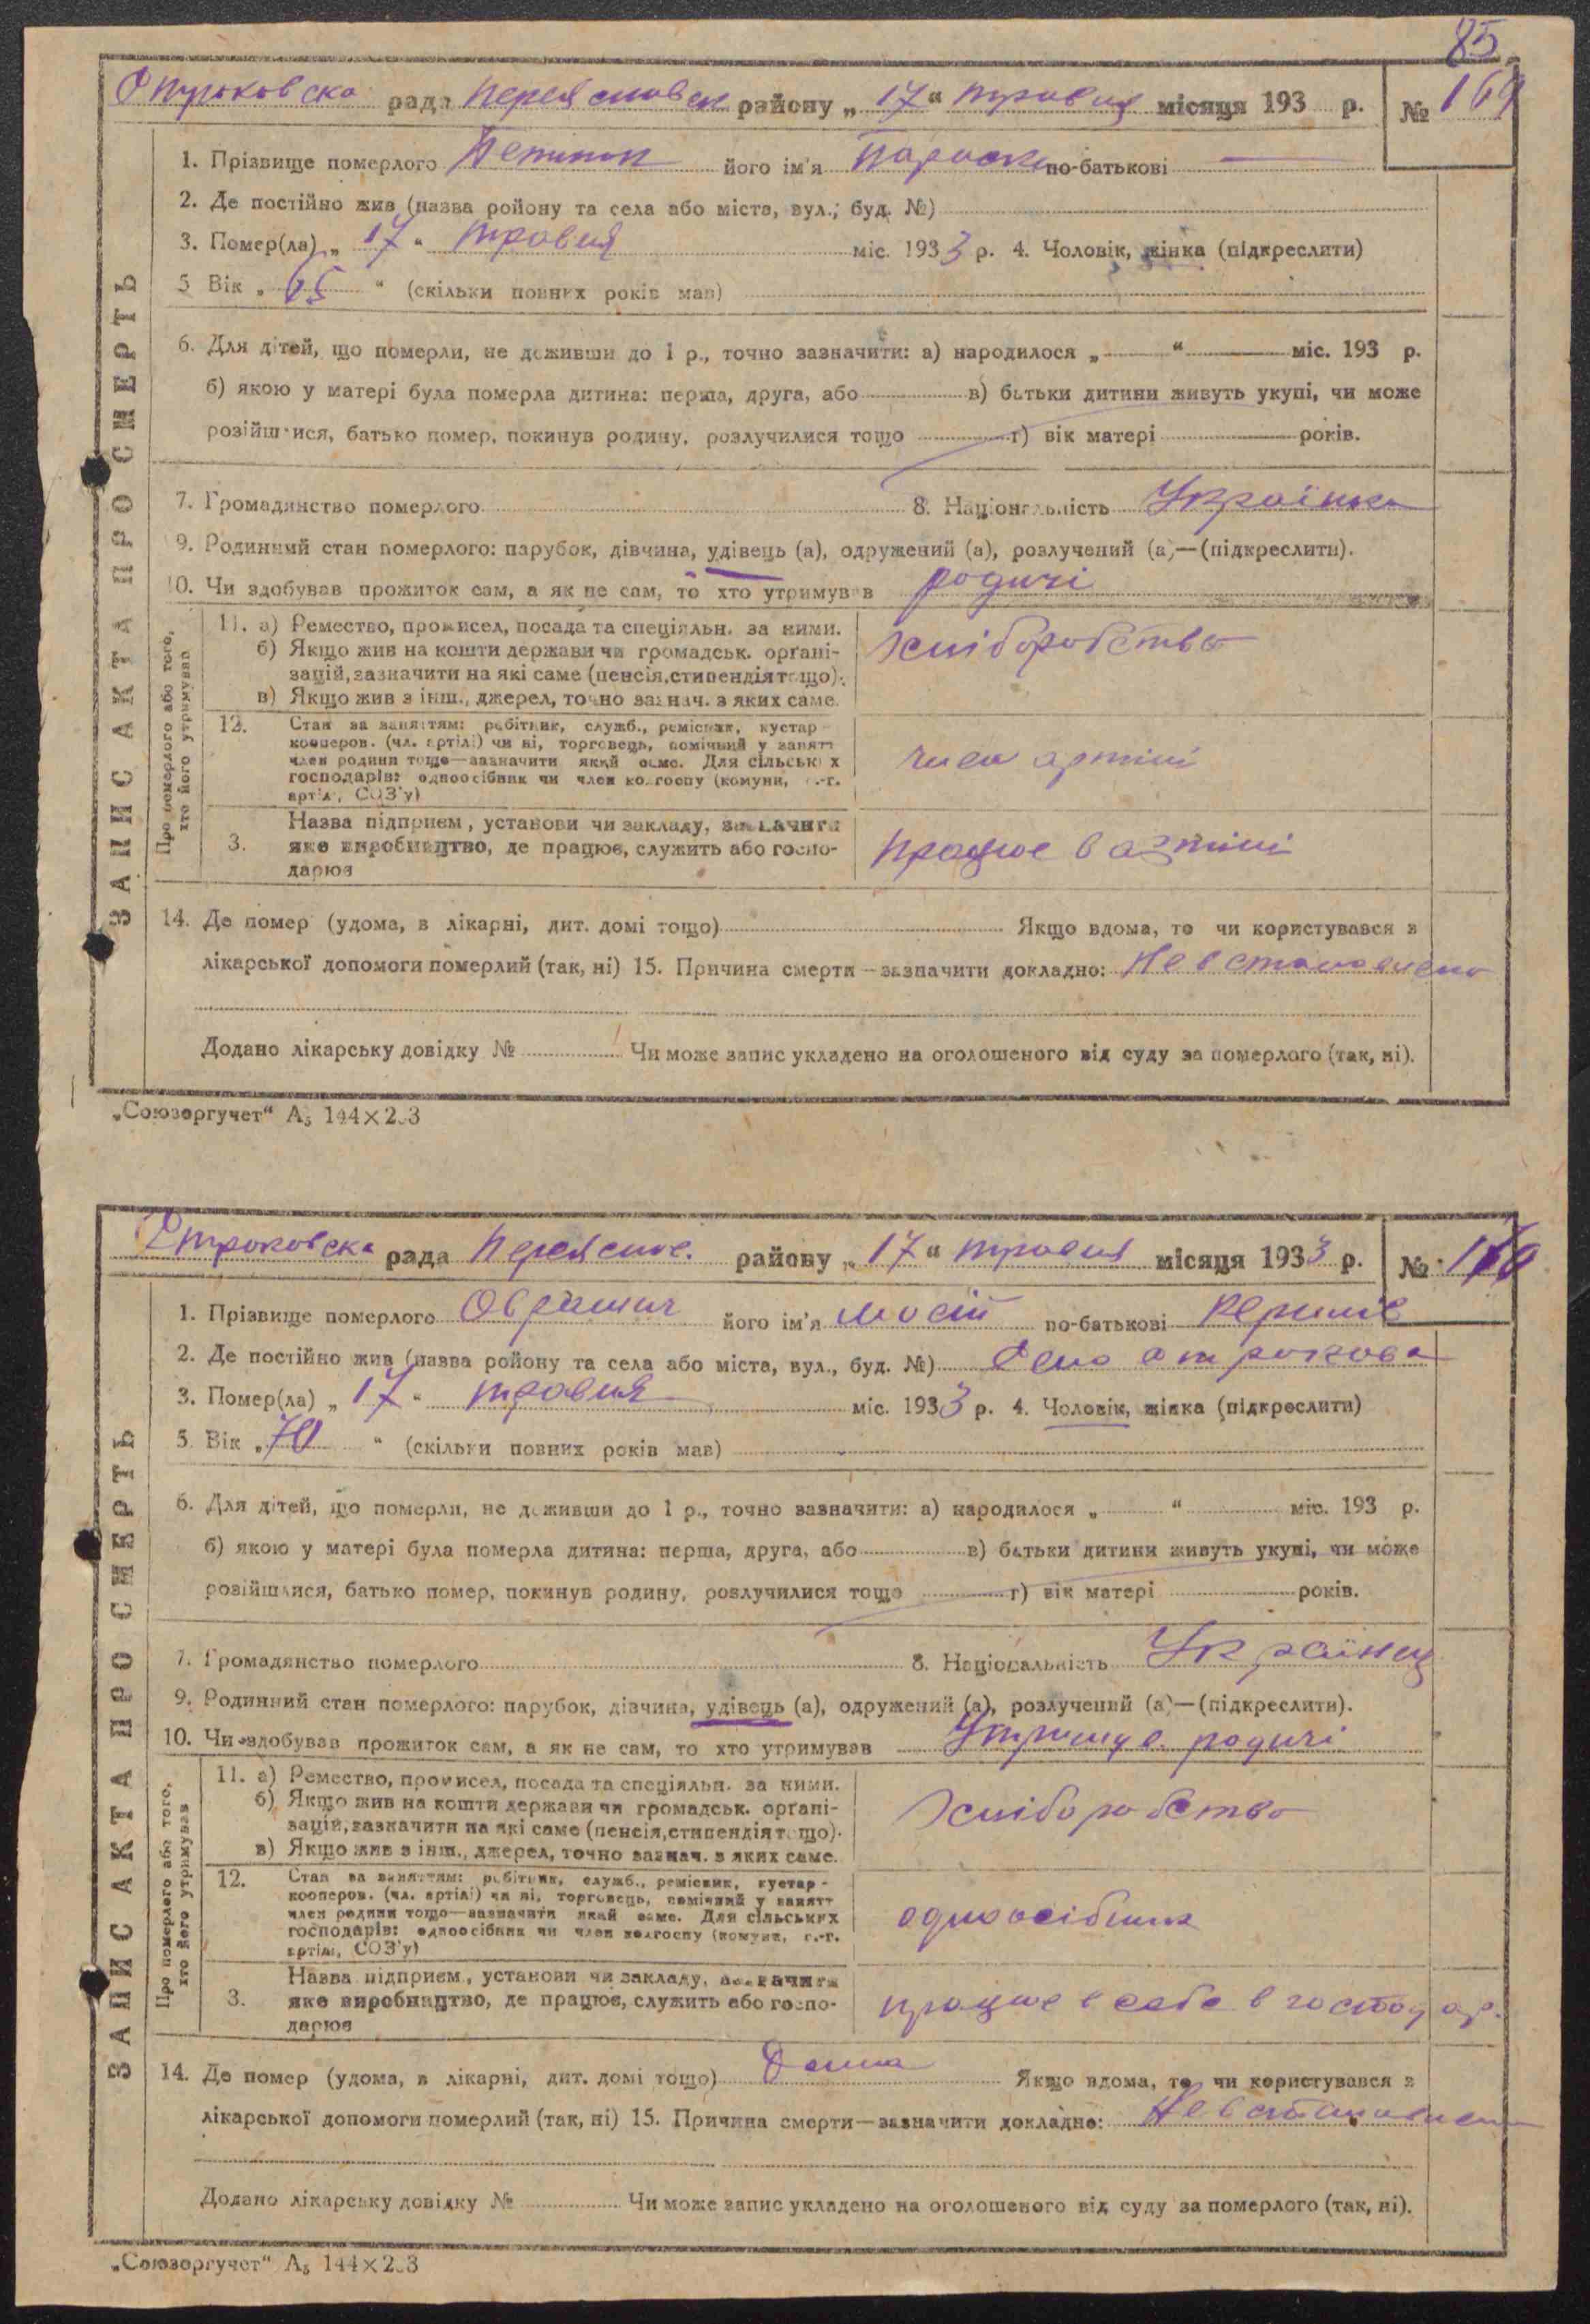 85
рада Переяславськ району „ 17 “ травня місяця 193 р. № 169
1. Прізвище померлого його ім'я Параска по-батькові —
2. Де постійно жив (назва району та села або міста, вул., буд. №)
3. Помер(ла) „ 17 “ травня міс. 1933 р. 4. Чоловік, жінка (підкреслити)
5 Вік „ 65 “ (скільки повних років мав)
6. Для дітей, що померли, не доживши до 1 р., точно зазначити: а) народилося „ “ міс. 193 р.
б) якою у матері була померла дитина: перша, друга, або в) батьки дитини живуть укупі, чи може
розійшлися, батько помер, покинув родину, розлучилися тощо г) вік матері років.
7. Громадянство померлого 8. Національність Українка
9. Родинний стан померлого: парубок, дівчина, удівець (а), одружений (а), розлучений (а)—(підкреслити).
10. Чи здобував прожиток сам, а як не сам, то хто утримував родичі
11. а) Ремество, промисел, посада та спеціяльн. за ними.
б) Якщо жив на кошти держави чи громадськ. орґані-
зацій, зазначити на які саме (пенсія, стипендія тощо).
в) Якщо жив з інш., джерел, точно зазнач. з яких саме.
хліборобство
12. Стан за заняттям: робітник, служб., ремісник, кустар-
кооперов. (чл. артілі) чи ні, торговець, помічний у занятт
член родини тощо—зазначити який саме. Для сільських
господарів: одноосібник чи член колгоспу (комуни, с.-г.
артілі, СОЗ'у)
член артілі
3. Назва підприєм., установи чи закладу, зазначити
яке виробництво, де працює, служить або госпо-
дарює
працює в артілі
14. Де помер (удома, в лікарні, дит. домі тощо) Якщо вдома, то чи користувався з
лікарської допомоги померлий (так, ні) 15. Причина смерти—зазначити докладно: Не встановлено
Додано лікарську довідку № Чи може запис укладено на оголошеного від суду за померлого (так, ні).
ЗАПИС АКТА ПРО СМЕРТЬ
Про померлого або того,
хто його утримував
„Союзоргучет“ А₅ 144×203
рада Переяслів. району „ 17 “ травня місяця 1933 р. № 170
1. Прізвище померлого його ім'я по-батькові
2. Де постійно жив (назва району та села або міста, вул., буд. №) Село
3. Помер(ла) „ 17 “ травня міс. 1933 р. 4. Чоловік, жінка (підкреслити)
5 Вік „ 70 “ (скільки повних років мав)
6. Для дітей, що померли, не доживши до 1 р., точно зазначити: а) народилося „ “ міс. 193 р.
б) якою у матері була померла дитина: перша, друга, або в) батьки дитини живуть укупі, чи може
розійшлися, батько помер, покинув родину, розлучилися тощо г) вік матері років.
7. Громадянство померлого 8. Національність Українец
9. Родинний стан померлого: парубок, дівчина, удівець (а), одружений (а), розлучений (а)—(підкреслити).
10. Чи здобував прожиток сам, а як не сам, то хто утримував родичі
11. а) Ремество, промисел, посада та спеціяльн. за ними.
б) Якщо жив на кошти держави чи громадськ. орґані-
зацій, зазначити на які саме (пенсія, стипендія тощо).
в) Якщо жив з інш., джерел, точно зазнач. з яких саме.
хліборобство
12. Стан за заняттям: робітник, служб., ремісник, кустар-
кооперов. (чл. артілі) чи ні, торговець, помічний у занятт
член родини тощо—зазначити який саме. Для сільських
господарів: одноосібник чи член колгоспу (комуни, с.-г.
артілі, СОЗ'у)
одноосібник
3. Назва підприєм., установи чи закладу, зазначити
яке виробництво, де працює, служить або госпо-
дарює
працює в себе в господар.
14. Де помер (удома, в лікарні, дит. домі тощо) Дома Якщо вдома, то чи користувався з
лікарської допомоги померлий (так, ні) 15. Причина смерти—зазначити докладно: Не встановлено
Додано лікарську довідку № Чи може запис укладено на оголошеного від суду за померлого (так, ні).
ЗАПИС АКТА ПРО СМЕРТЬ
Про померлого або того,
хто його утримував
„Союзоргучет“ А₅ 144×203